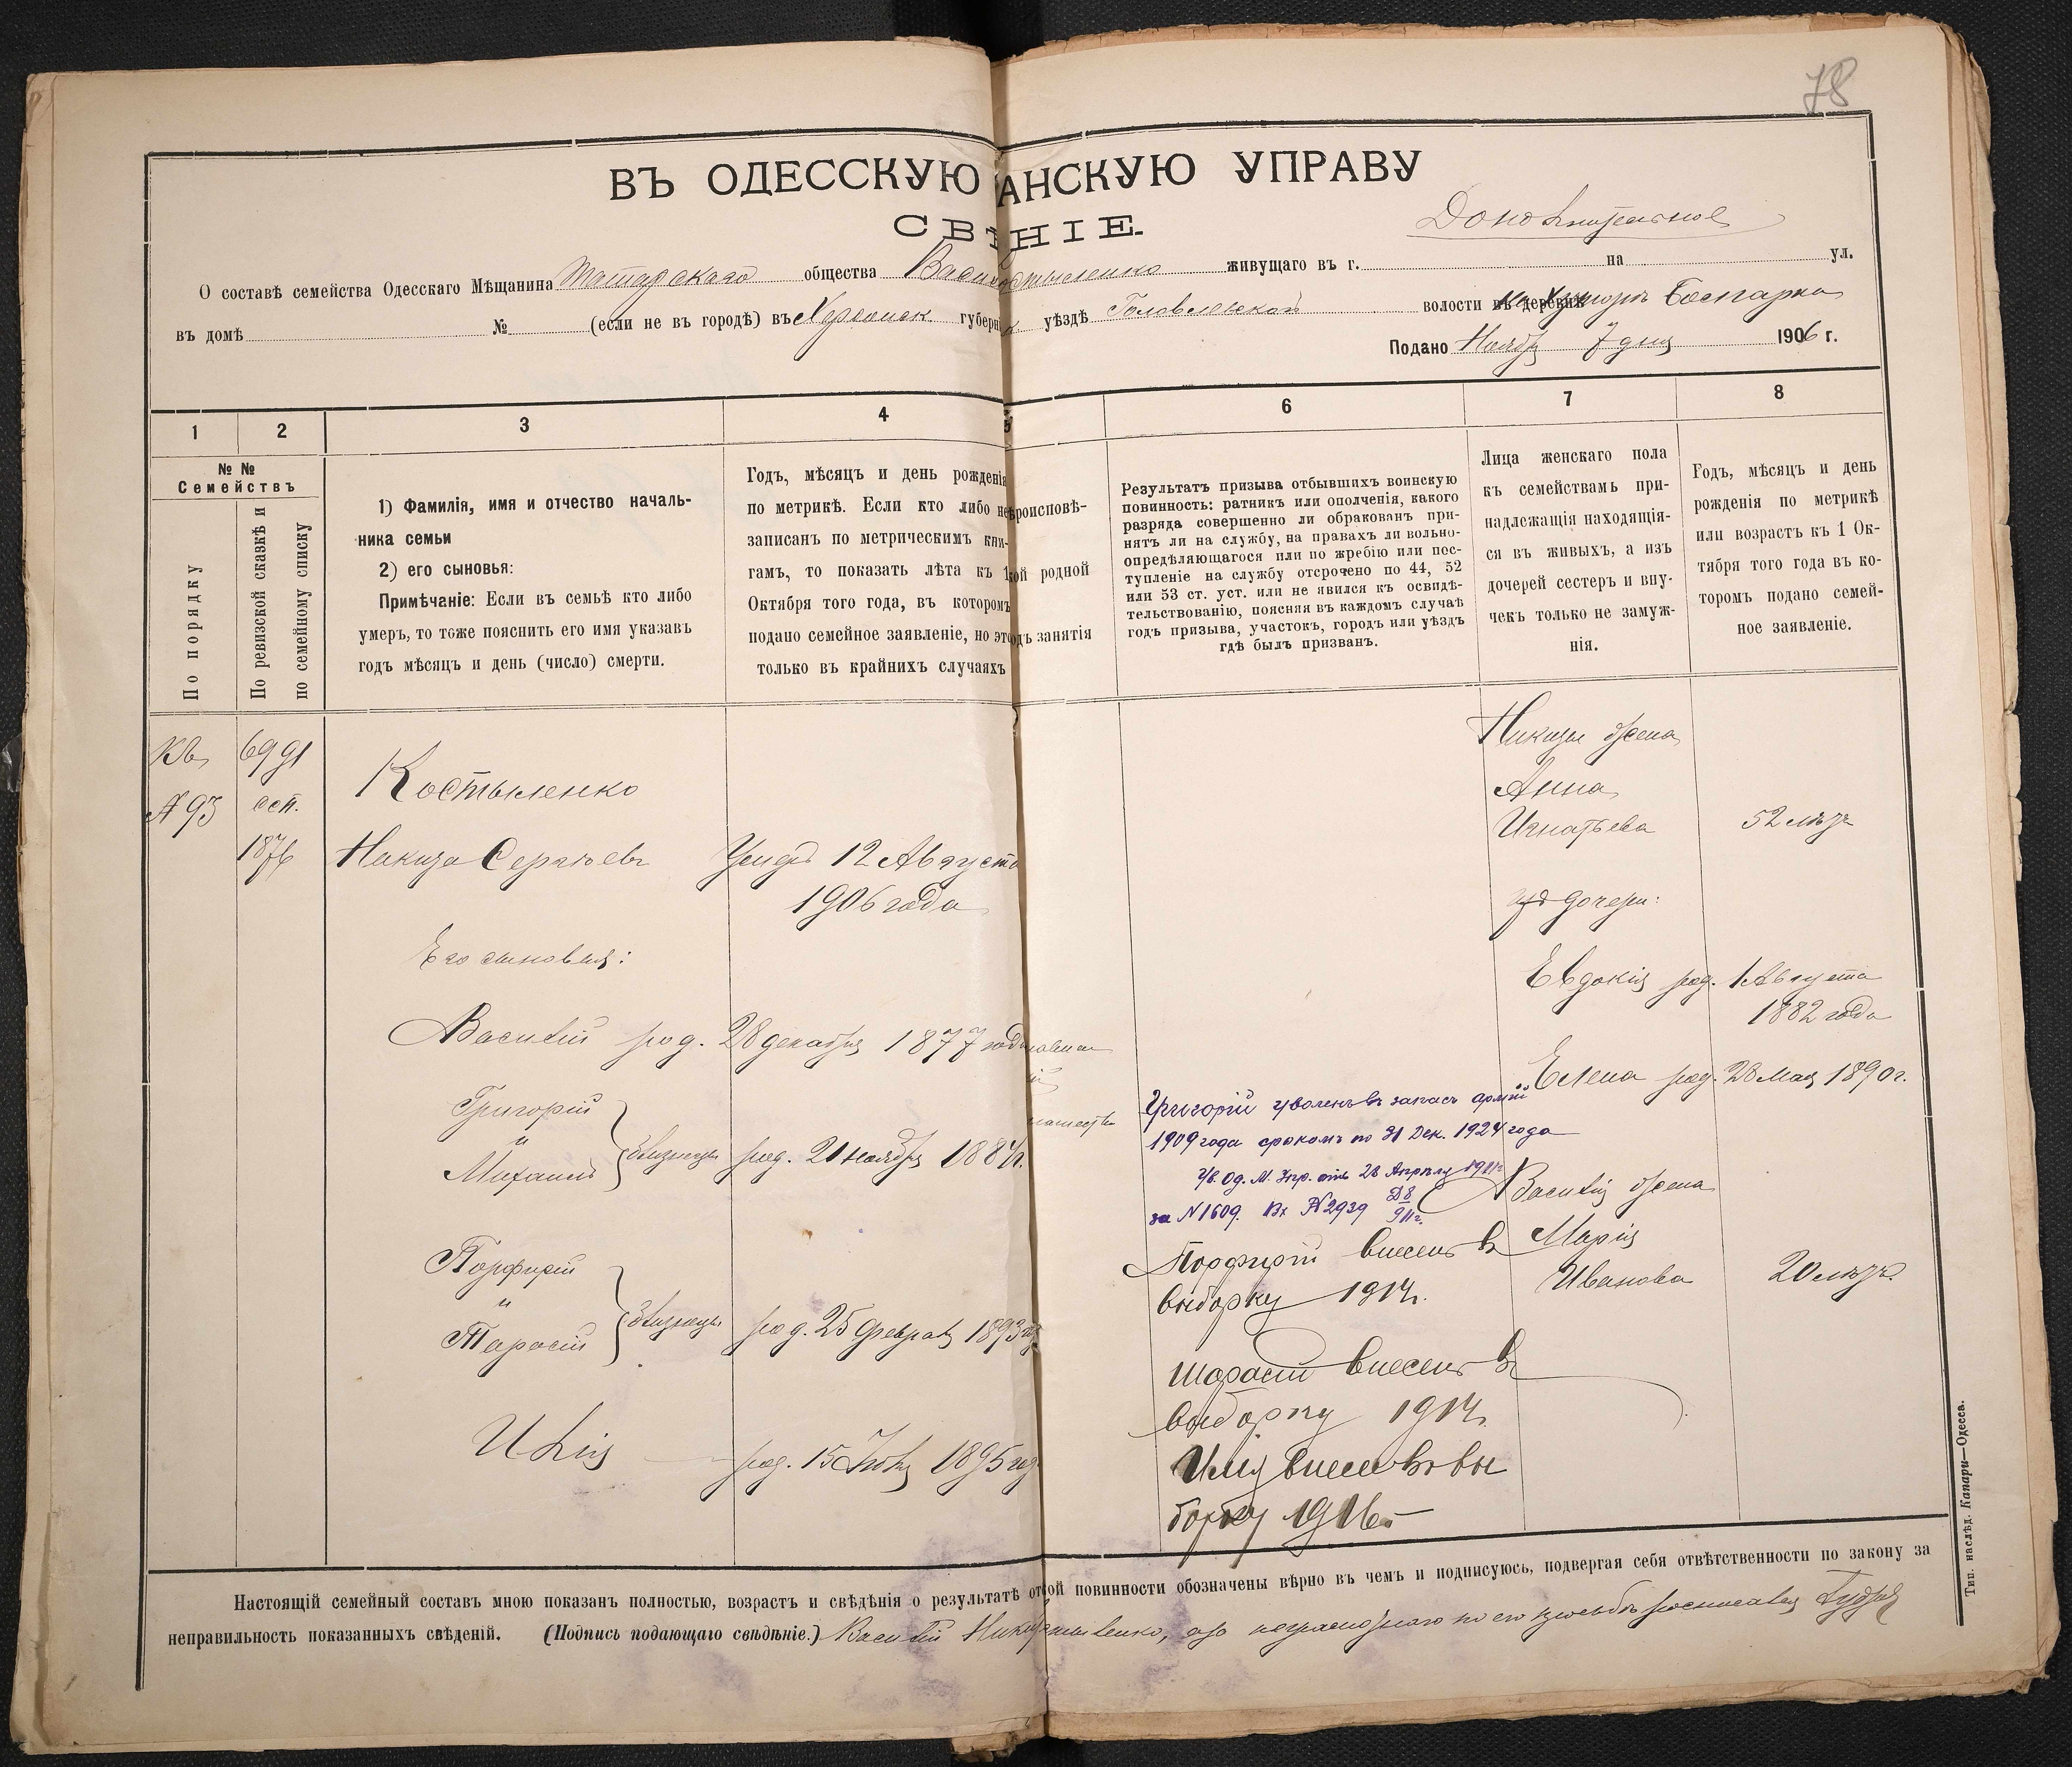 78
ВЪ ОДЕССКУЮ АНСКУЮ УПРАВУ
СВѢНІЕ.
О составѣ семейства Одесскаго Мѣщанина Татарскаго общества живущаго въ г. на ул.
въ домѣ № (если не въ городѣ) въ Херсонск губерн уѣздѣ волости
Подано Ноябр 7 дня 1906 г.
1 2 3 4 5 6 7 8
№ № Семействъ
По порядку
По ревизской сказкѣ и по семейному списку
1) Фамилія, имя и отчество началь-
ника семьи
2) его сыновья:
Примѣчаніе: Если въ семьѣ кто либо
умеръ, то тоже пояснить его имя указавъ
годъ мѣсяцъ и день (число) смерти.
Годъ, мѣсяцъ и день рожденія
по метрикѣ. Если кто либо не
записанъ по метрическимъ кни-
гамъ, то показать лѣта къ 1
Октября того года, въ которомъ
подано семейное заявленіе, но это
только въ крайнихъ случаяхъ
роисповѣ-
ой родной
одъ занятія
Результатъ призыва отбывшихъ воинскую
повинность: ратникъ или ополченія, какого
разряда совершенно ли обракованъ при-
нятъ ли на службу, на правахъ ли вольно-
опредѣляющагося или по жребію или пос-
тупленіе на службу отсрочено по 44, 52
или 53 ст. уст. или не явился къ освидѣ-
тельствованію, поясняя въ каждомъ случаѣ
годъ призыва, участокъ, городъ или уѣздъ
гдѣ былъ призванъ.
Лица женскаго пола
къ семействамъ при-
надлежащія находящія-
ся въ живыхъ, а изъ
дочерей сестеръ и вну-
чекъ только не замуж-
нія.
Годъ, мѣсяцъ и день
рожденія по метрикѣ
или возрастъ къ 1 Ок-
тября того года въ ко-
торомъ подано семей-
ное заявленіе.
6991
№ 93
1876
Костыленко
Никита Сергѣевъ Умеръ 12 Августа
1906 года
Его сыновья:
Василій род. 28 декабря 1877 год
Григорій
"
Михаилъ
близнецы род. 21 ноября 1884 г.
Порфирій
"
Тарасій
близнецы род. 25 Февраля 1893 го
Илія род. 15 Іюля 1895 го
Григорій уволенъ въ запасъ арміи
1909 года срокомъ по 31 Дек. 1924 года
Ув. Од. М. Упр. отъ 28 Апрѣля 1911 г.
за № 1609. Вх № 2939
Порфирій внесенъ в
выборку 1914 г.
Тарасій внесенъ в
выборку 1914 г.
Илія внесенъ въ вы
борку 1916 г.
Никиты жена
Анна
Игнатьева 52 лѣтъ
дочери:
Евдокія род. 1 Августа
1882 года
Елена род. 28 Мая 1890 г.
Василія жена
Марія
Иванова 20 лѣтъ
Настоящій семейный составъ мною показанъ полностью, возрастъ и свѣдѣнія о результатѣ от ой повинности обозначены вѣрно въ чемъ и подписуюсь, подвергая себя отвѣтственности по закону за
неправильность показанныхъ свѣденій. (Подпись подающаго свѣдѣніе.) Василій
Тип. наслѣд. Капари—Одесса.